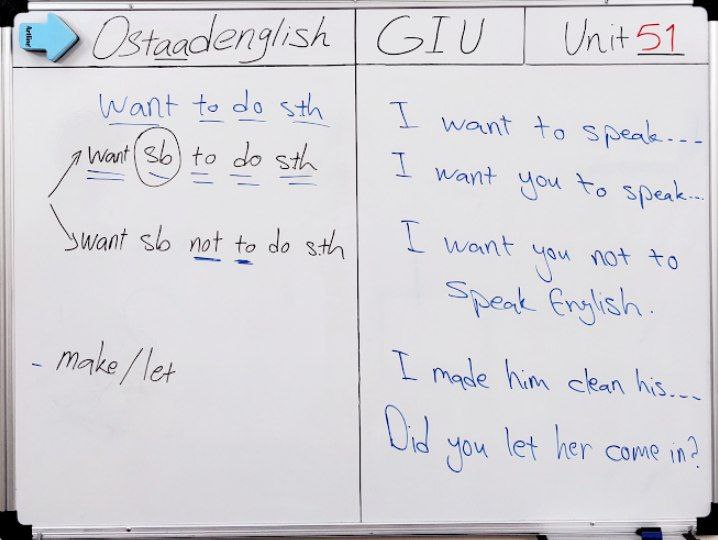 Artline
Ostaadenglish
GIU
Unit 51
want to do sth
want sb to do sth
want sb not to do sth
- make/let
I want to speak....
I want you to speak...
I want you not to
speak English.
I made him clean his...
Did you let her come in?